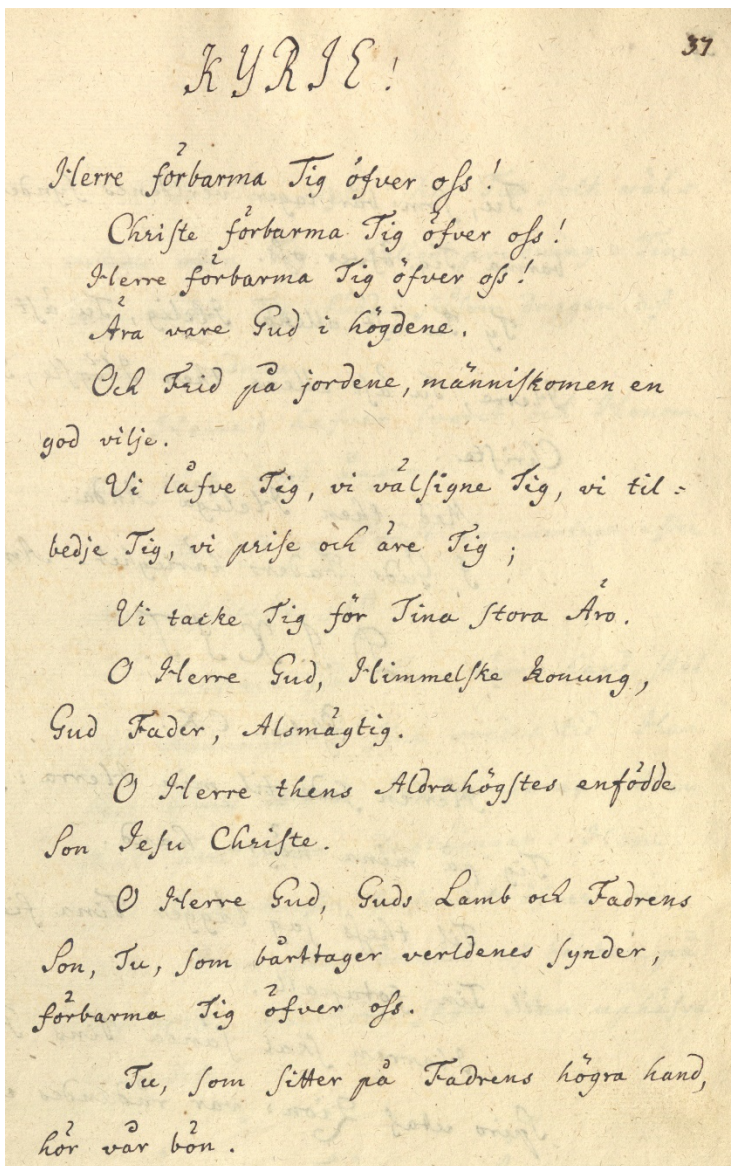 37
KYRIE!
Herre förbarma Tig öfver oſs!
Chriſte förbarma Tig öfver oſs!
Herre förbarma Tig öfver oſs!
Ära vare Gud i högdene.
Och Frid på jordene, människomen en
god vilje.
Vi låfve Tig, vi välſigne Tig, vi til=
bedje Tig, vi priſe och äre Tig;
Vi tacke Tig för Tina ſtora Äro.
O Herre Gud, Himmelſke Konung,
Gud Fader, Alsmägtig.
O Herre thens Aldrahögſtes enfödde
Son Jeſu Chriſte.
O Herre Gud, Guds Lamb och Fadrens
Son, Tu, ſom bårttager verldenes ſynder,
förbarma Tig öfver oſs.
Tu, ſom ſitter på Fadrens högra hand,
hör vår bön.